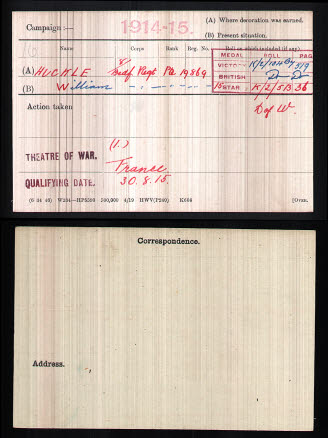 Campaign:— 1914-15. (A) Where decoration was earned.
(B) Present situation.
Name Corps Rank Reg. No. Roll on which included (if any)
MEDAL ROLL PAGE
(A) HUCKLE Bedf. Regt Pte 19869 VICTORY K/2/104 B9 319
(B) William - " - - " - - " - BRITISH - Do - Do -
15 STAR K/2/5B 36
Action taken D of W.
THEATRE OF WAR. (1.) France
QUALIFYING DATE. 30.8.15.
(6 34 46) W234—HP5590 500,000 4/19 HWV(P240) K608 [Over.
Correspondence.
Address.